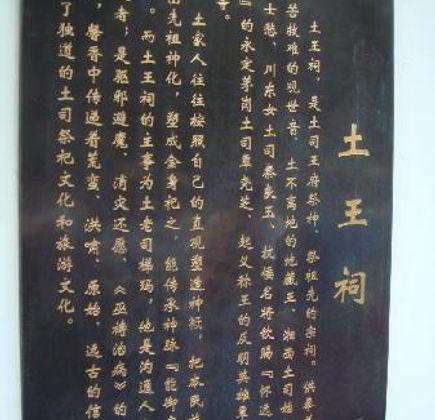 土王祠
土王祠，是土司王府祭神、祭祖先的宗祠。供奉
苦救难的观世音、土不离地的地藏王、湘西土司
士愁、川东女土司秦良玉、抗倭名将钦赐『怀
』的永定茅岗土司覃尧芝、起义称王的反明英雄覃
等。
土家人往往按照自己的直观塑造神祇，把本民
出先祖神化，塑成金身祀之，能传承神脉『能御
。而土王祠的主事为土老司梯玛，他是沟通人
者；是驱邪避魔、消灾还愿、《巫祷治病》的
，馨香中传递着荒蛮、洪喃、原始、远古的信
了独道的土司祭祀文化和旅游文化。